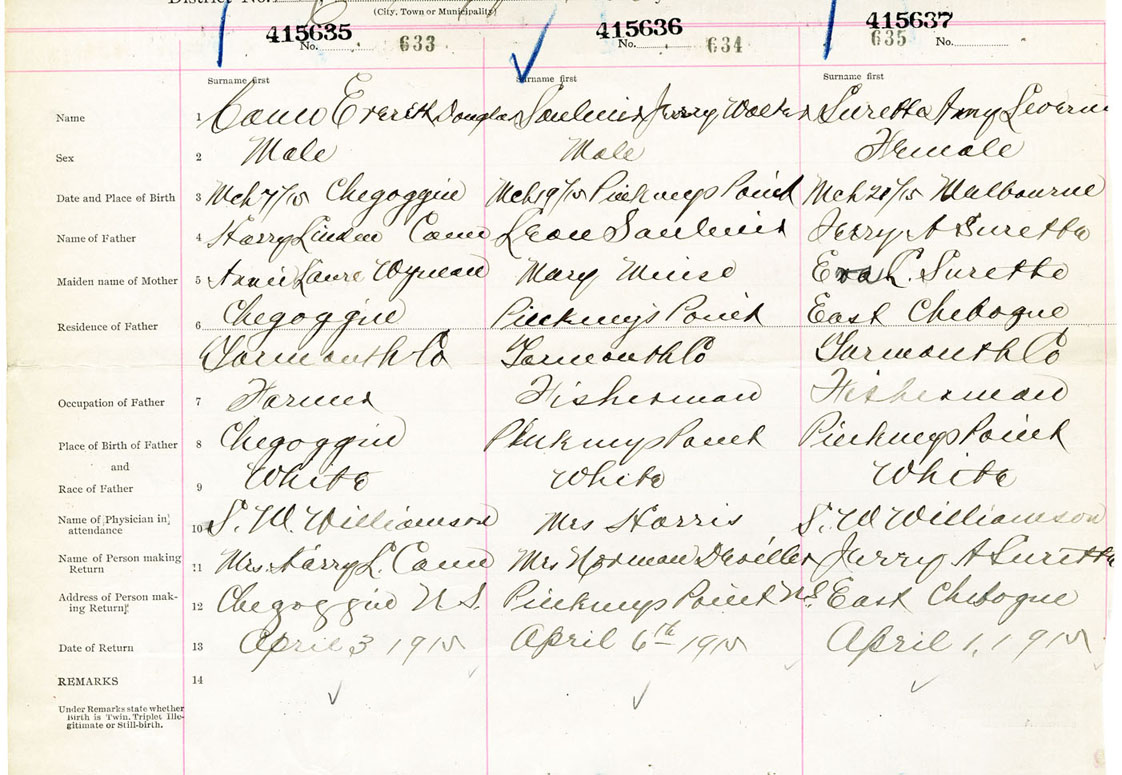 District No.
(City, Town or Municipality)
415635 415636 415637
No. 633 No. 634 635 No.
Surname first Surname first Surname first
Name 1 Everitt Douglas Saulnier Jerry Walter Surette Amy Severin
Sex 2 Male Male Female
Date and Place of Birth 3 Mch 7/15 Cheggoggin Mch 19/15 Pinkneys Point Mch 28/15 Melbourne
Name of Father 4 Harry Linden Leon Saulnier Jerry A Surette
Maiden name of Mother 5 Annie Laure Wyman Mary Muise Eva L. Surette
Residence of Father 6 Chegoggin Pinkneys Point East Chebogue
Yarmouth Co Yarmouth Co Yarmouth Co
Occupation of Father 7 Farmer Fisherman Fisherman
Place of Birth of Father 8 Chegoggin Pinkneys Point Pinkneys Point
and
Race of Father 9 White White White
Name of Physician in attendance 10 S. W. Williamson Mrs Harris S. W Williamson
Name of Person making Return 11 Mrs. Harry L. Mrs Norman Jerry A Surette
Address of Person making Return 12 Chegoggin N.S. Pinkneys Point N.S. East Chebogue
Date of Return 13 April 3 1915 April 6th 1915 April 1, 1915
REMARKS 14
Under Remarks state whether
Birth is Twin, Triplet, Ille-
gitimate or Still-birth.